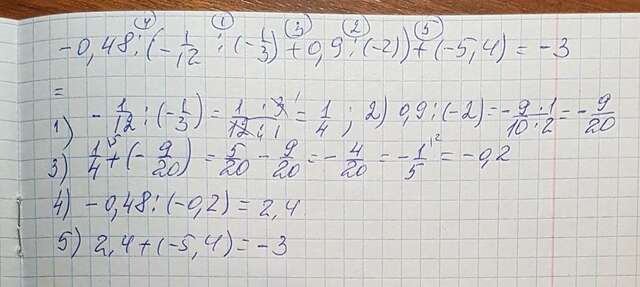 4 1 3 2 5
-0,48:(-1/12:(-1/3)+0,9:(-2))+(-5,4)=-3
=
1) -1/12:(-1/3)=1·3¹/12₄·1=1/4; 2) 0,9:(-2)=-9·1/10·2=-9/20
3) 1/4⁵+(-9/20)=5/20-9/20=-4/20=-1/5²=-0,2
4) -0,48:(-0,2)=2,4
5) 2,4+(-5,4)=-3